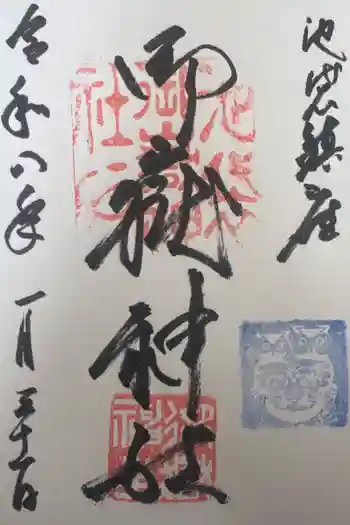 池袋鎮座
御嶽神社
令和八年 一月三十一日